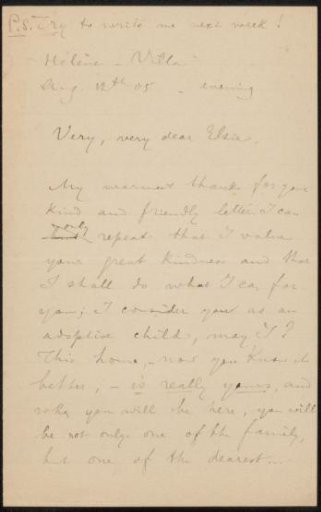 P.S. Try to write me next week!
Hélène - Villa
Aug. 12th 05 - evening
Very, very dear Elsie,
My warmest thanks for your
kind and friendly letter. I can
only repeat that I value
your great kindness and that
I shall do what I can for
you; I consider you as an
adoptive child, may I?
This home, - now you know it
better, - is really yours, and
when you will be here, you will
be not only one of the family,
but one of the dearest...